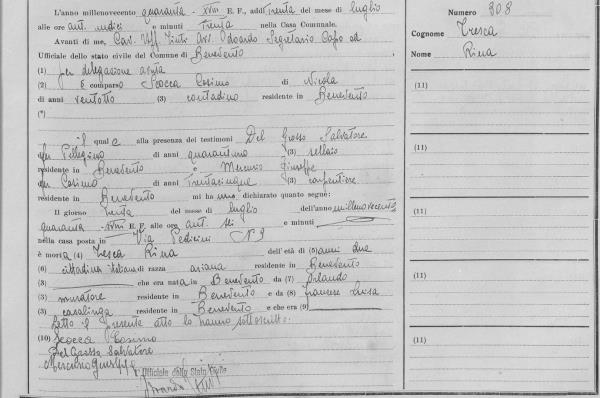 L'anno millenovecento quaranta - XVIII E. F., addì trenta del mese di luglio
alle ore ant. undici e minuti trenta nella Casa Comunale.
Avanti di me, Cav. Uff. Avv. Edoardo Segretario Capo ed
Ufficiale dello stato civile del Comune di Benevento
(1) per delegazione avuta
(2) è comparso Scocca Cosimo di Nicola
di anni ventotto (3) contadino residente in Benevento
(*)
il quale alla presenza dei testimoni Del Grosso Salvatore
fu Pellegrino di anni quarantuno (3) sellaio
residente in Benevento e Mercurio Giuseppe
fu Cosimo di anni trentacinque (3) carpentiere
residente in Benevento mi ha uno dichiarato quanto segue:
Il giorno trenta del mese di luglio dell'anno millenovecento
quaranta - XVIII E. F. alle ore ant. sei e minuti
nella casa posta in Via N 9
è morta (4) Tresca Rina dell'età di (5) anni due
(6) cittadina italiana di razza ariana residente in Benevento
(3) che era nata in Benevento da (7) Orlando
(3) muratore residente in Benevento e da (8) Francese Luisa
(3) casalinga residente in Benevento e che era (9)
Letto il presente atto lo hanno sottoscritto.
(10) Scocca Cosimo
Del Grosso Salvatore
Mercurio Giuseppe
L'Ufficiale dello Stato Civile
Numero 308
Cognome Tresca
Nome Rina
(11)
(11)
(11)
(11)
(11)